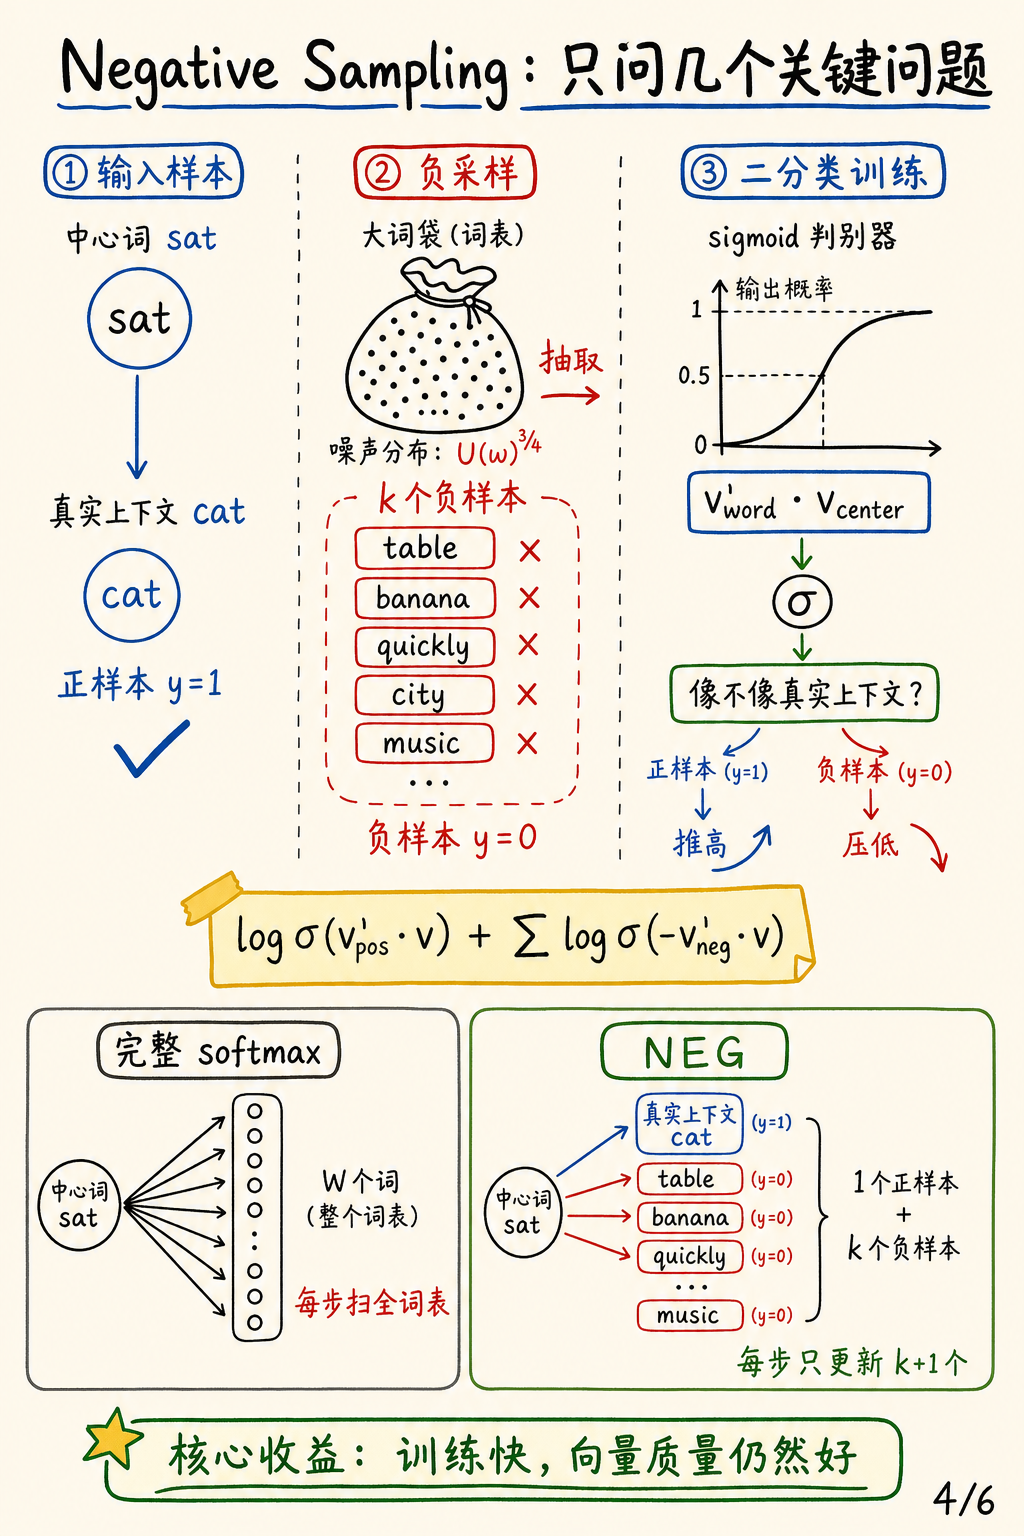 Negative Sampling：只问几个关键问题
① 输入样本
中心词 sat
sat
真实上下文 cat
cat
正样本 y=1
② 负采样
大词袋（词表）
抽取
噪声分布：U(w)^3/4
k个负样本
table ×
banana ×
quickly ×
city ×
music ×
...
负样本 y=0
③ 二分类训练
sigmoid 判别器
输出概率
1
0.5
0
v'word · vcenter
σ
像不像真实上下文？
正样本 (y=1)
负样本 (y=0)
推高
压低
log σ(v'pos · v) + ∑ log σ(-v'neg · v)
完整 softmax
中心词
sat
W个词
（整个词表）
每步扫全词表
NEG
中心词
sat
真实上下文
cat
(y=1)
table (y=0)
banana (y=0)
quickly (y=0)
...
music (y=0)
1个正样本
+
k个负样本
每步只更新 k+1个
核心收益：训练快，向量质量仍然好
4/6